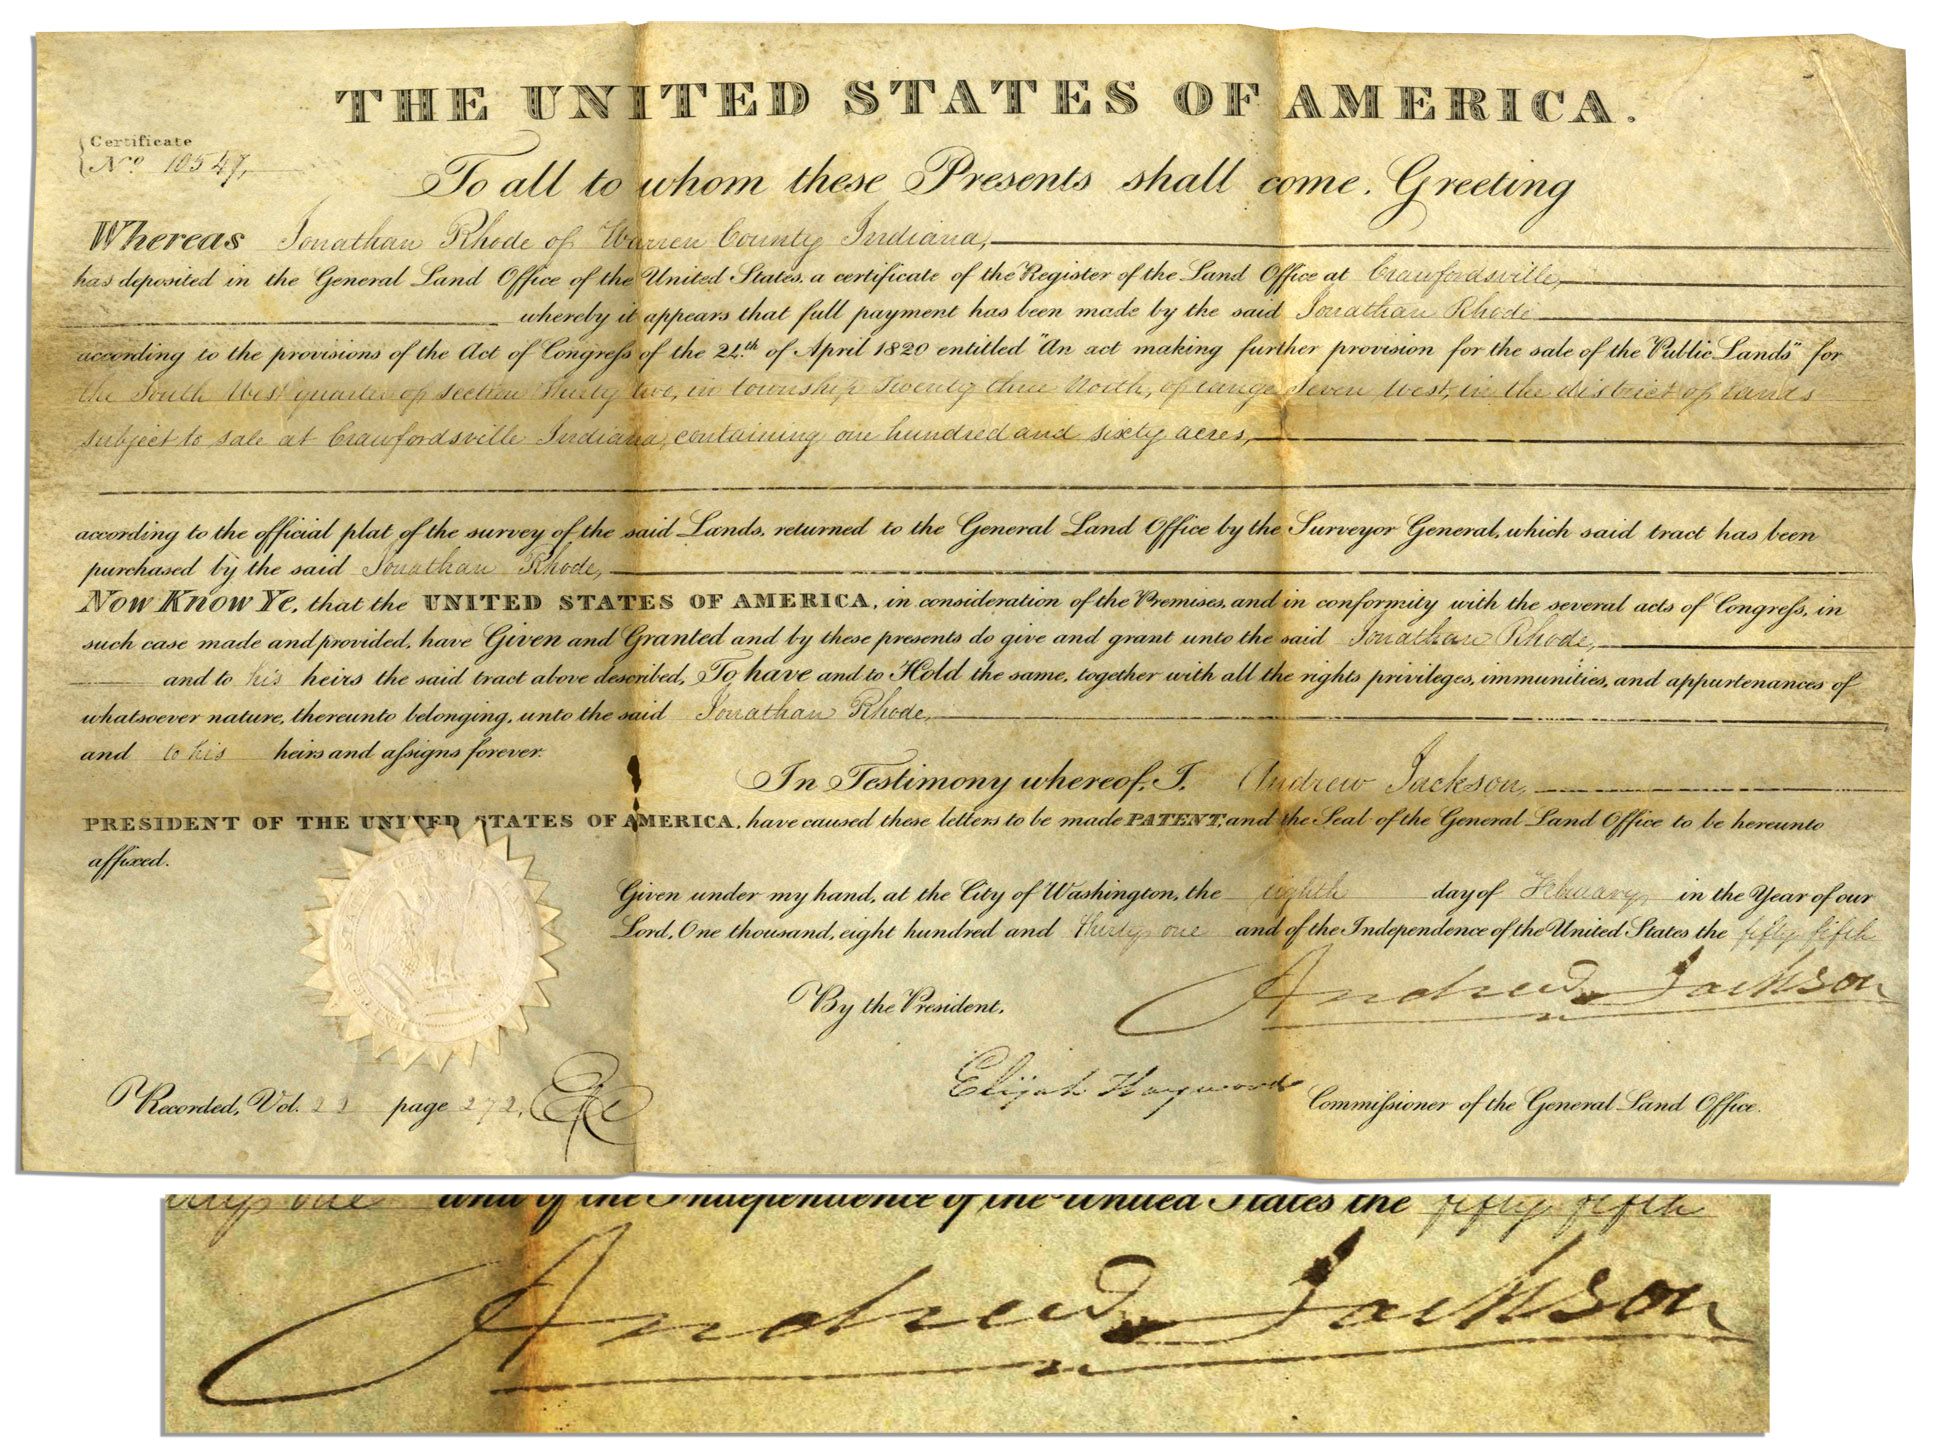 THE UNITED STATES OF AMERICA.
Certificate
No. 10547,
To all to whom these Presents shall come, Greeting
Whereas Jonathan Rhode of Warren County Indiana,
has deposited in the General Land Office of the United States, a certificate of the Register of the Land Office at Crawfordsville,
whereby it appears that full payment has been made by the said Jonathan Rhode
according to the provisions of the Act of Congress of the 24th of April 1820 entitled "An act making further provision for the sale of the Public Lands" for
the South West quarter of section thirty two, in township twenty three North, of range seven West, in the district of lands
subject to sale at Crawfordsville Indiana, containing one hundred and sixty acres,
according to the official plat of the survey of the said Lands, returned to the General Land Office by the Surveyor General, which said tract has been
purchased by the said Jonathan Rhode,
Now Know Ye, that the UNITED STATES OF AMERICA, in consideration of the Premises, and in conformity with the several acts of Congress, in
such case made and provided, have Given and Granted and by these presents do give and grant unto the said Jonathan Rhode,
and to his heirs the said tract above described, To have and to Hold the same, together with all the rights privileges, immunities, and appurtenances of
whatsoever nature, thereunto belonging, unto the said Jonathan Rhode,
and to his heirs and assigns forever.
In Testimony whereof, I, Andrew Jackson,
PRESIDENT OF THE UNITED STATES OF AMERICA, have caused these letters to be made PATENT, and the Seal of the General Land Office to be hereunto
affixed.
Given under my hand, at the City of Washington, the eighth day of February, in the Year of our
Lord, One thousand, eight hundred and thirty one and of the Independence of the United States the fifty fifth
Andrew Jackson
By the President,
Elijah Hayward Commissioner of the General Land Office.
Recorded, Vol. page 272,
one and of the Independence of the United States the fifty fifth
Andrew Jackson